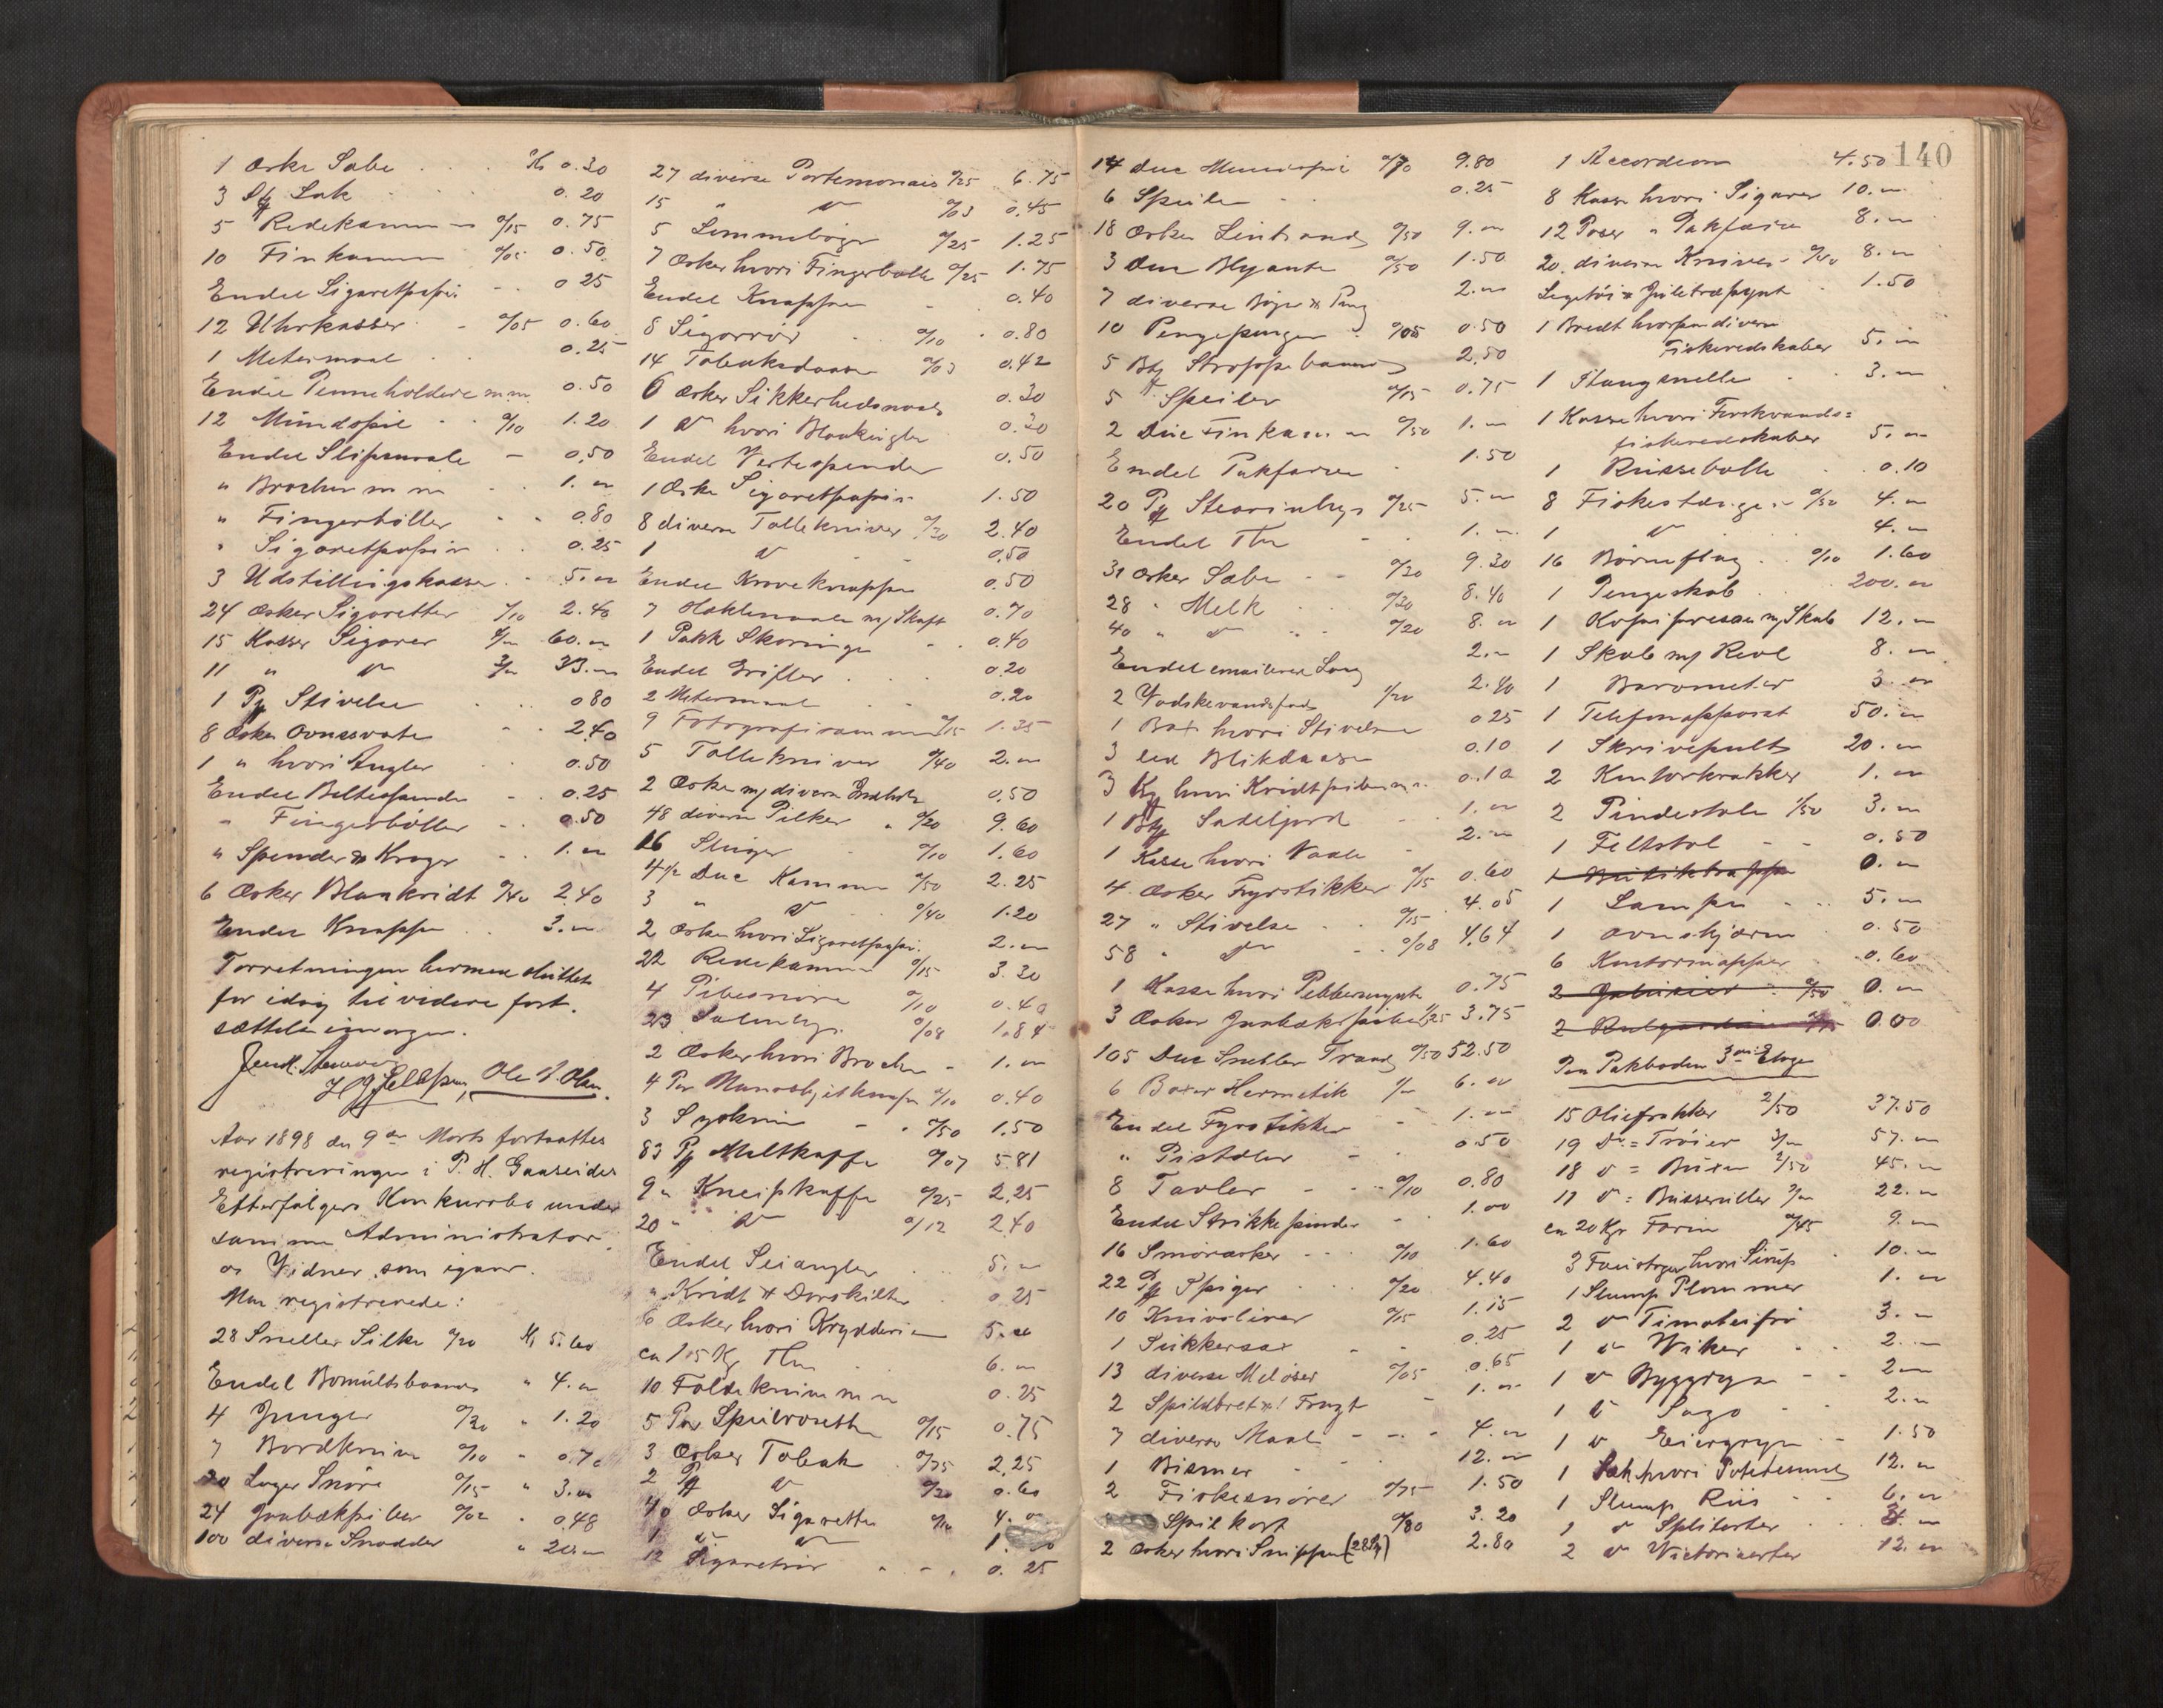 1 Æske Sæbe . . . Kr 0.30
3 Stg Lak . . . 0.20
5 Redekamme 0/15 0.75
10 Finkamme 0/05 0.50
Endel Sigaretpapir - . 0 25
12 Uhrkasser . - 0/05 0.60
1 Metermaal . . 0.25
Endel Penneholdere m.m. 0.50
12 Mundspil . . 0/10 1.20
Endel Slipsnaale - 0,50
" Brocher m m . . 1. "
" Fingerbøller . . 0.80
" Sigaretpapir . . 0.25
3 Udstillingskasser . - 5. "
24 Æsker Sigaretter 0/10 2.40
15 Kasser Sigarer 4/" 60. "
11 " Do 3/" 33. "
1 Pk Stivelse . . 0 80
8 Æsker Ovnssværte . . 2.40
1 " hvori Angler . 0.50
Endel Beltespænder - . 0.25
" Fingerbøller - . 0.50
" Spender & Kroger . . 1. "
6 Æsker Blankridt 0/40 2.40
Endel Knappe . . 3. "
Forretningen hermed sluttet
for idag til videre fort-
sættelse imorgen.
Ole A. Olsen.
Aar 1898 den 9de Marts fortsattes
registreringen i P. H. Gaaseides
Efterfølgers Konkursbo under
samme Administrator
og Vidner som igaar.
Man registrerede:
28 Sneller Silke 0/20 Kr 5.60
Endel Bomuldsbaand " 4. "
4 Junger 0/30 " 1.20
7 Bordknive 0/10 " 0.70
20 Lager Snøre 0/15 " 3. "
24 Jernbækpiber 0/02 " 0.48
100 diverse Snadder " 20. "
27 diverse Portemonais 0/25 6.75
15 " Do 0/03 0.45
5 Lommebøger 0/25 1.25
7 Æsker hvori Fingerbølle 0/25 1.75
Endel Knapper - 0.40
8 Sigarrør . 0/10 . 0.80
14 Tobaksdaaser 0/03 0.42
6 Æsker Sikkerhedsnaale 0.30
1 Do hvori Blankugler 0.30
Endel Vestespender 0.50
1 Æske Sigaretpapir 1.50
8 diverse Tolleknive 0/30 2.40
1 Do - - 0,50
Endel Kraveknapper 0.50
7 Heklenaale m/ Skaft 0.70
1 Pakk Skoringe - . 0.40
Endel Grifler . . . 0.20
2 Metermaal . . 0.20
9 Fotografirammer 0/15 1.35
5 Tolleknive 0/40 2. "
2 Æsker m/ diverse Indhold 0,50
48 diverse Pilker " 0/20 9.60
16 Slinger - 0/10 1.60
4 1/2 Dus Kamme 0/50 2.25
3 " Do 0/40 1.20
2 Æsker hvori Sigaretpapir 2. "
22 Redekamme 0/15 3.30
4 Pibesnøre 0/10 0.40
23 Salmelys 0/08 1.84
2 Æsker hvori Brocher - 1. "
4 Par Manschetknapper 0/10 0.40
3 Syskrin - . 0/50 1.50
83 Pk Maltkaffe 0/07 5.81
9 " Kneipkaffe 0/25 2,25
20 " Do 0/12 2.40
Endel Seiangler . . 5. "
" Kridt & Dørskilter . 0 25
6 Æsker hvori Krydderier 5. "
ca 15 Kg The . 6. "
10 Foldeknive m m 0.25
5 Par Speilrosetter 0/15 0.75
3 Æsker Tobak 0/75 2,25
2 Pk Do 0/30 0.60
40 Æsker Sigaretter 0/10 4. "
1 Do Do 1.
12 Sigaretrør " - . 0. 25
14 Dus Mundspil 0/70 9.80
6 Speile . . 0.25
18 Æsker Lintraad 0/50 9. "
3 Dus Blyanter 0/50 1.50
7 diverse Bøger & Pung 2. "
10 Pengepunger . 0/05 0.50
5 Btg Stroppebaand 2.50
5 " Speiler 0/15 0.75
2 Dus Finkamme 0/50 1. "
Endel Pakfarve . 1.50
20 Pk Stearinlys 0/25 5. "
Endel The - . 1. "
31 Æsker Sæbe - - 0/30 9.30
28 " Melk . . 0/30 8.40
40 " Do " . 0/20 8. "
Endel emaileret Løog 2. "
2 Vadskevandsfade 1/20 2.40
1 Box hvori Stivelse 0 25
3 led Blikdaaser 0.10
3 Kg hvori Kridtpiber m.m. 0.10
1 Btg Sadelgjord - . 1. "
1 Kasse hvori Naale - 2. "
4 Æsker Fyrstikker 0/15 0.60
27 " Stivelse . . 0/15 . 4.05
58 " Do - . 0/08 4,64
1 Kasse hvori Pebbermynte 0.75
3 Æsker Jernbækspiber 1/25 3.75
105 Dus Sneller Traad 0/50 52.50
6 Boxer Hermetik 1/" 6. "
Endel Fyrstikker - 1. "
" Pistoler - . 0.50
8 Tavler - . - 0/10 0.80
Endel Strikkepinder - . 1.00
16 Smøræsker - . . 0/10 1.60
22 Pk Spiger . . . 0/20 4.40
10 Knivslirer 0/15 1.15
1 Sukkersax - - 0.25
13 diverse Meløser 0/05 0.65
2 Spildbret & 1 Tragt - 1. "
7 diverse Maal - - . - 4. "
1 Bismer - . . 12. "
2 Fiskesnører 0/75 - 1.50
Spilkort 0/80 3.20
2 Æsker hvori Snipper (28 St) 2.80
140
1 Accordeon 4.50
8 Kasse hvori Sigarer 10. "
12 Poser " Pakfarve 8. "
20 diverse Knive - 0/40 8. "
Legetøi & Juletræpynt - 1.50
1 Bredt hvorpaa diverse
Fiskeredskaber 5. "
1 Stangsnelle . . 3. "
1 Kasse hvori Ferskvands=
fiskeredskaber 5. "
1 Russebolle . . 0.10
8 Fiskestænger 0/50 4. "
1 Do . . 4. "
16 Børneflag . . 0/10 1.60
1 Pengeskab . . 200. "
1 Kopipresse m/ Skab 12. "
1 Skab m/ Reol 8. "
1 Barometer 3. "
1 Telefonapparat 50. "
1 Skrivepult 20. "
2 Kontorkrakker 1. "
2 Pindestole 1/50 3. "
1 Feltstol - - 0.50
1 Butiktrappe 0. "
1 Lampe - . . 5. "
1 Ovnskjærm . 0. 50
6 Kontormapper . 0.60
2 Galusier . . 0/50 0. "
2 Rulgardiner 0/75 0.00
Paa Pakboden 3die Etage
15 Oliefrakker 2/50 37.50
19 Do = Trøier 3/" 57. "
18 Do = Buxer 2/50 45. "
11 Do = Busseruller 2/" 22. "
ca 20 Kgr Farin 0/45 9. "
3 Fustager hvori Sirup . 10. "
1 Slump Plommer . 1. "
2 Do Timoteifrø 3. "
1 Do Wiker . . 2. "
1 Do Byggryn - - 2 "
1 Do Sago - . 2. "
1 Do Eiergryn - - 1.50
1 Sæk hvori Potetesmel 12. "
1 Slump Riis - . 6. "
1 Do Spliterter . . . "
2 Do Victoriaerter 12. "